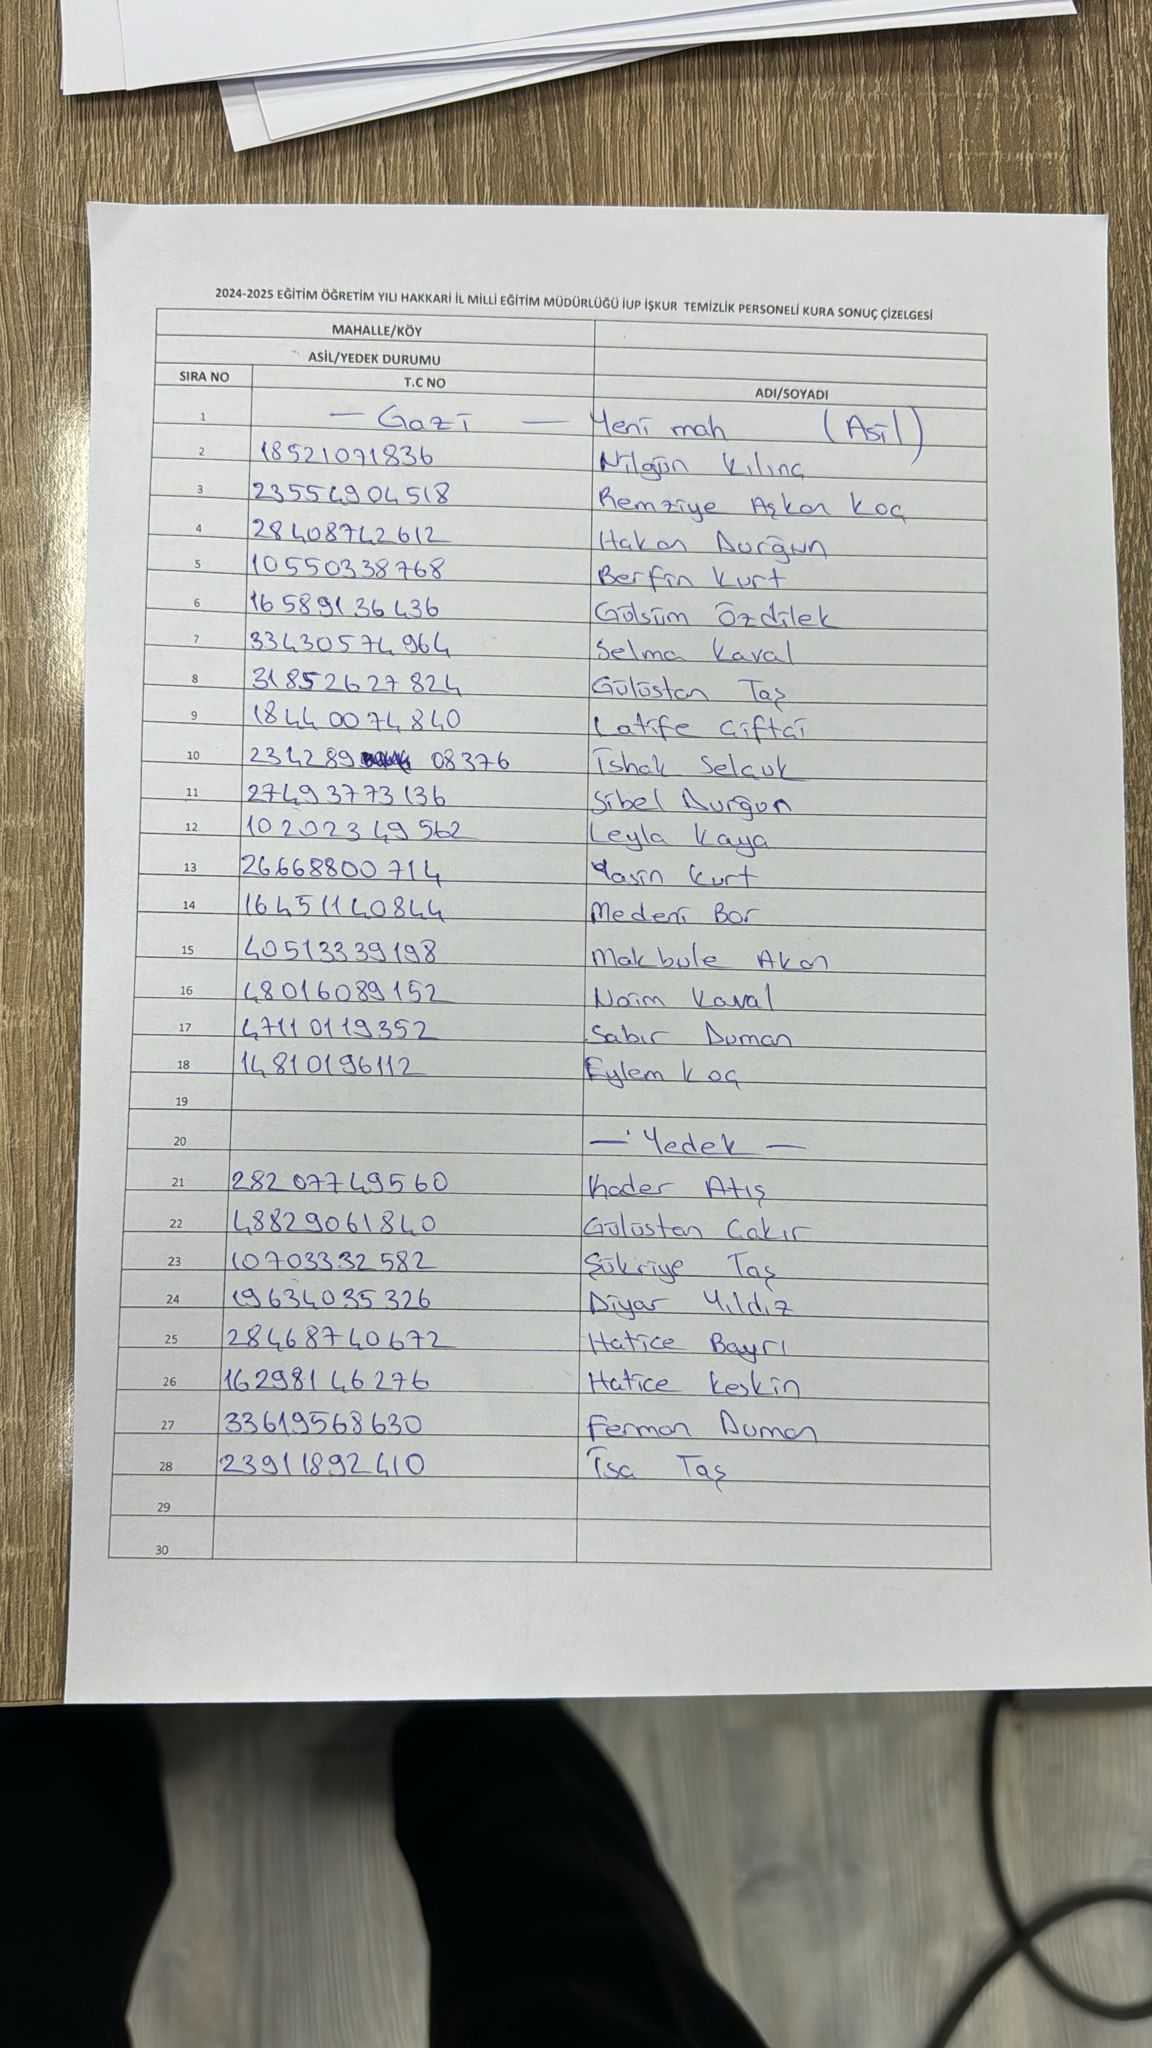 2024-2025 EĞİTİM ÖĞRETİM YILI HAKKARİ İL MİLLİ EĞİTİM MÜDÜRLÜĞÜ İUP İŞKUR TEMİZLİK PERSONELİ KURA SONUÇ ÇİZELGESİ
MAHALLE/KÖY
ASİL/YEDEK DURUMU
SIRA NO T.C NO ADI/SOYADI
1 — Gazi — Yeni mah (Asil)
2 18521071836 Nilgün Kılınç
3 23554904518 Remziye Aşkan Koç
4 28408742612 Hakan Durğun
5 10550338768 Berfin Kurt
6 16589136436 Gülsüm Özdilek
7 33430574964 Selma Kaval
8 31852627824 Gülüstan Taş
9 18440074840 Latife Çiftçi
10 234289 08376 İshak Selçuk
11 27493773136 Sibel Durğun
12 10202349562 Leyla Kaya
13 26668800714 Yasin Kurt
14 16451140844 Medeni Bor
15 40513339198 Makbule Akan
16 48016089152 Naim Kaval
17 47110119352 Sabır Duman
18 14810196112 Eylem Koç
19
20 — Yedek —
21 28207749560 Kader Atış
22 48829061840 Gülüstan Çakır
23 10703332582 Şükriye Taş
24 19634035326 Diyar Yıldız
25 28468740672 Hatice Bayrı
26 16298146276 Hatice Keskin
27 33619568630 Ferman Duman
28 23911892410 İsa Taş
29
30